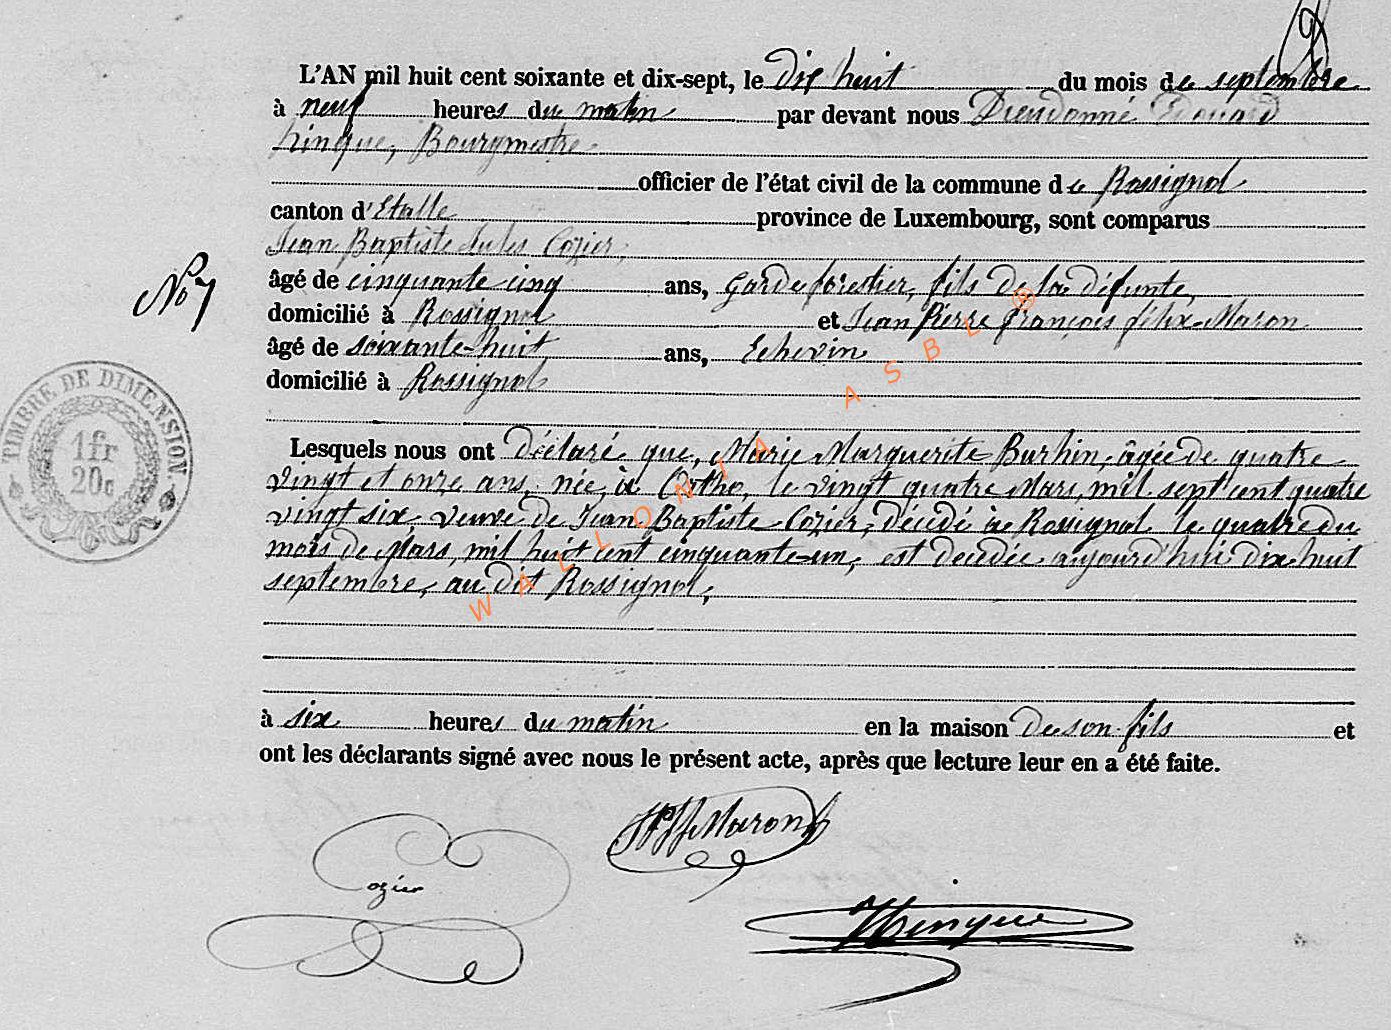 L'AN mil huit cent soixante et dix-sept, le dix huit du mois de septembre
à neuf heures du matin par devant nous Dieudonné Edouard
Hinque, Bourgmestre
officier de l'état civil de la commune de Rossignol
canton d'Etalle province de Luxembourg, sont comparus
Jean Baptiste Jules Cozier,
âgé de cinquante cinq ans, garde forestier, fils de la défunte,
No 7
domicilié à Rossignol et Jean Pierre François félix Maron
âgé de soixante-huit ans, Echevin
domicilié à Rossignol
TIMBRE DE DIMENSION
1fr
20c
Lesquels nous ont déclaré que, Marie Marguerite Burhin, âgée de quatre
vingt et onze ans, née à Ortho, le vingt quatre Mars, mil sept cent quatre
vingt six, veuve de Jean Baptiste Cozier, décédé à Rossignol le quatre du
mois de Mars, mil huit cent cinquante-un, est décédée aujourd'hui dix huit
septembre, au dit Rossignol,
WALLONIA ASBL ®
à six heures du matin en la maison de son fils et
ont les déclarants signé avec nous le présent acte, après que lecture leur en a été faite.
Maron
Cozier
Hinque